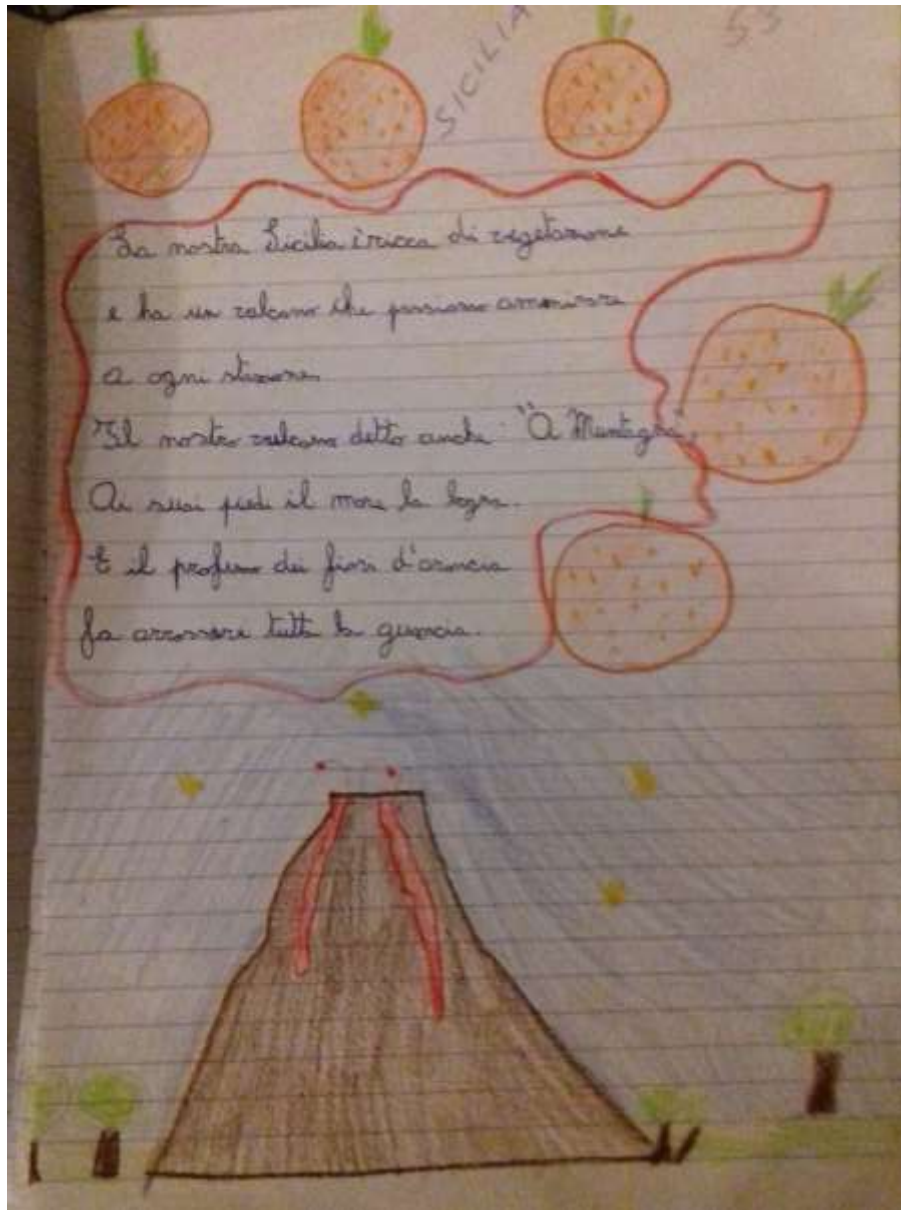 SICILIA
53
La nostra Sicilia è ricca di vegetazione
e ha un vulcano che possiamo ammirare
a ogni stazione.
Il nostro vulcano detto anche "A Muntagna",
Ai suoi piedi il mare la bagna.
E il profumo dei fiori d'arancia
fa arrossire tutta la guancia.